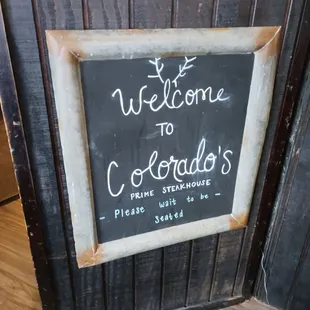 Welcome
TO
Colorado's
PRIME STEAKHOUSE
- Please wait to be -
Seated